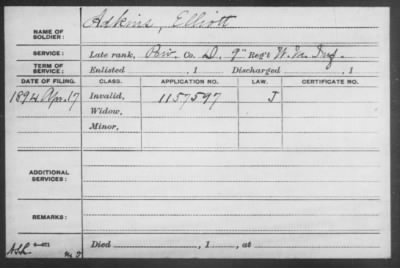 Adkins, Elliott
NAME OF SOLDIER:
SERVICE: Late rank, Priv. Co. D, 9" Reg't W. Va. Inf.
TERM OF SERVICE: Enlisted , 1 Discharged , 1
DATE OF FILING. CLASS. APPLICATION NO. LAW. CERTIFICATE NO.
1894 Apr. 17 Invalid, 1157597 J
Widow,
Minor,
ADDITIONAL SERVICES:
REMARKS:
Died , 1 , at